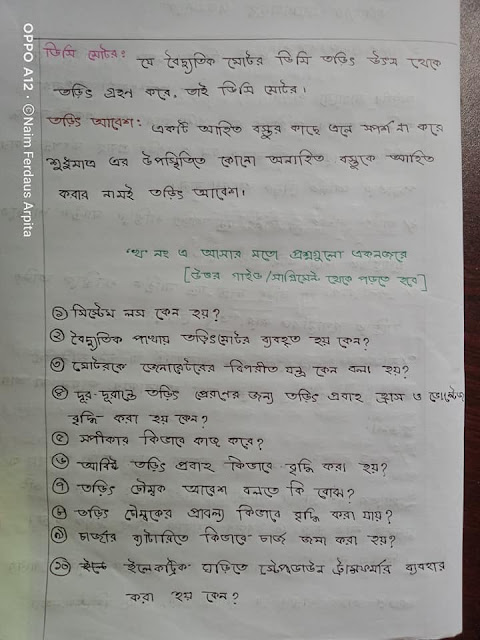 ডিসি মোটর: যে বৈদ্যুতিক মোটর ডিসি তড়িৎ উৎস থেকে
তড়িৎ গ্রহন করে, তাই ডিসি মোটর।
তড়িৎ আবেশ: একটি আহিত বস্তুর কাছে এনে স্পর্শ না করে
শুধুমাত্র এর উপস্থিতিতে কোনো অনাহিত বস্তুকে আহিত
করার নামই তড়িৎ আবেশ।
'খ' নং এ আসার মতো প্রশ্নগুলো একনজরে
[উত্তর গাইড/সাপ্লিমেন্ট থেকে পড়তে হবে]
১ সিস্টেম লস কেন হয়?
২ বৈদ্যুতিক পাখায় তড়িৎমোটর ব্যবহৃত হয় কেন?
৩ মোটরকে জেনারেটরের বিপরীত যন্ত্র কেন বলা হয়?
৪ দূর-দূরান্তে তড়িৎ প্রেরণের জন্য তড়িৎ প্রবাহ হ্রাস ও ভোল্টেজ
বৃদ্ধি করা হয় কেন?
৫ স্পীকার কিভাবে কাজ করে?
৬ আবিষ্ট তড়িৎ প্রবাহ কিভাবে বৃদ্ধি করা হয়?
৭ তড়িৎ চৌম্বক আবেশ বলতে কি বোঝ?
৮ তড়িৎ চৌম্বকের প্রাবল্য কিভাবে বৃদ্ধি করা যায়?
৯ চার্জার ব্যাটারিতে কিভাবে চার্জ জমা করা হয়?
১০ ইলেকট্রিক ঘড়িতে স্টেপডাউন ট্রান্সফর্মার ব্যবহার
করা হয় কেন?
OPPO A12 · ©Naim Ferdaus Arpita